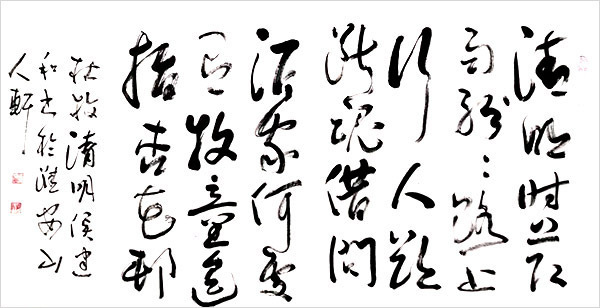 清明时节
雨纷々路上
行人欲
断魂借问
酒家何处
有牧童遥
指杏花邨
杜牧清明侯建
和书於淮安山
人軒